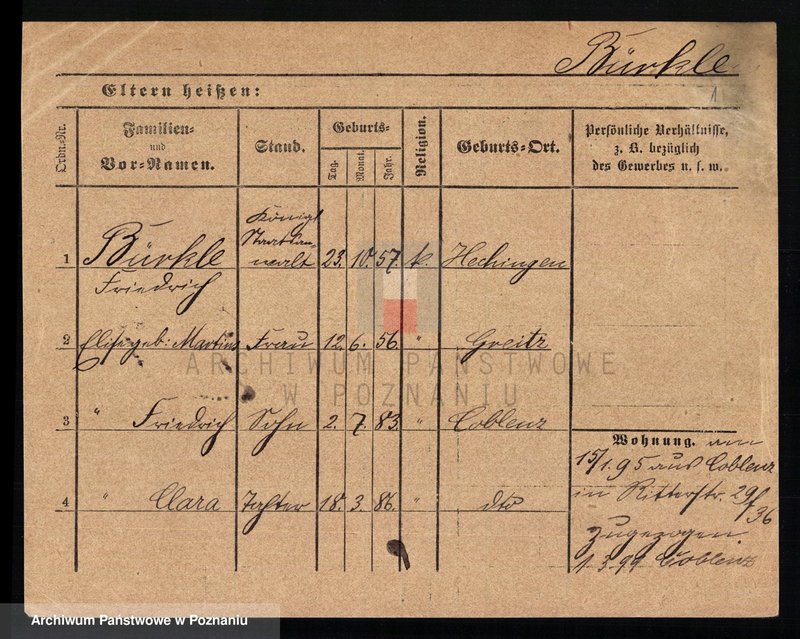 Bürkle
1
Eltern heißen:
Ordn.-Nr.
Familien- und Vor-Namen.
Stand.
Geburts-
Tag.
Monat.
Jahr.
Religion.
Geburts-Ort.
Persönliche Verhältnisse,
z. B. bezüglich
des Gewerbes u. s. w.
Königl
Staatsan-
1 Bürkle walt 23. 10. 57. k. Hechingen
Friedrich
2 Elise geb: Martins Frau 12. 6. 56. " Greitz
ARCHIWUM PAŃSTWOWE
W POZNANIU
3 " Friedrich Sohn 2. 7. 83. " Coblenz
4 " Clara Tochter 18. 3. 86. " dto
Wohnung. am
15/1. 95 aus Coblenz
in Ritterstr. 29/
36
zugezogen.
1.3.99 Coblenz
Archiwum Państwowe w Poznaniu